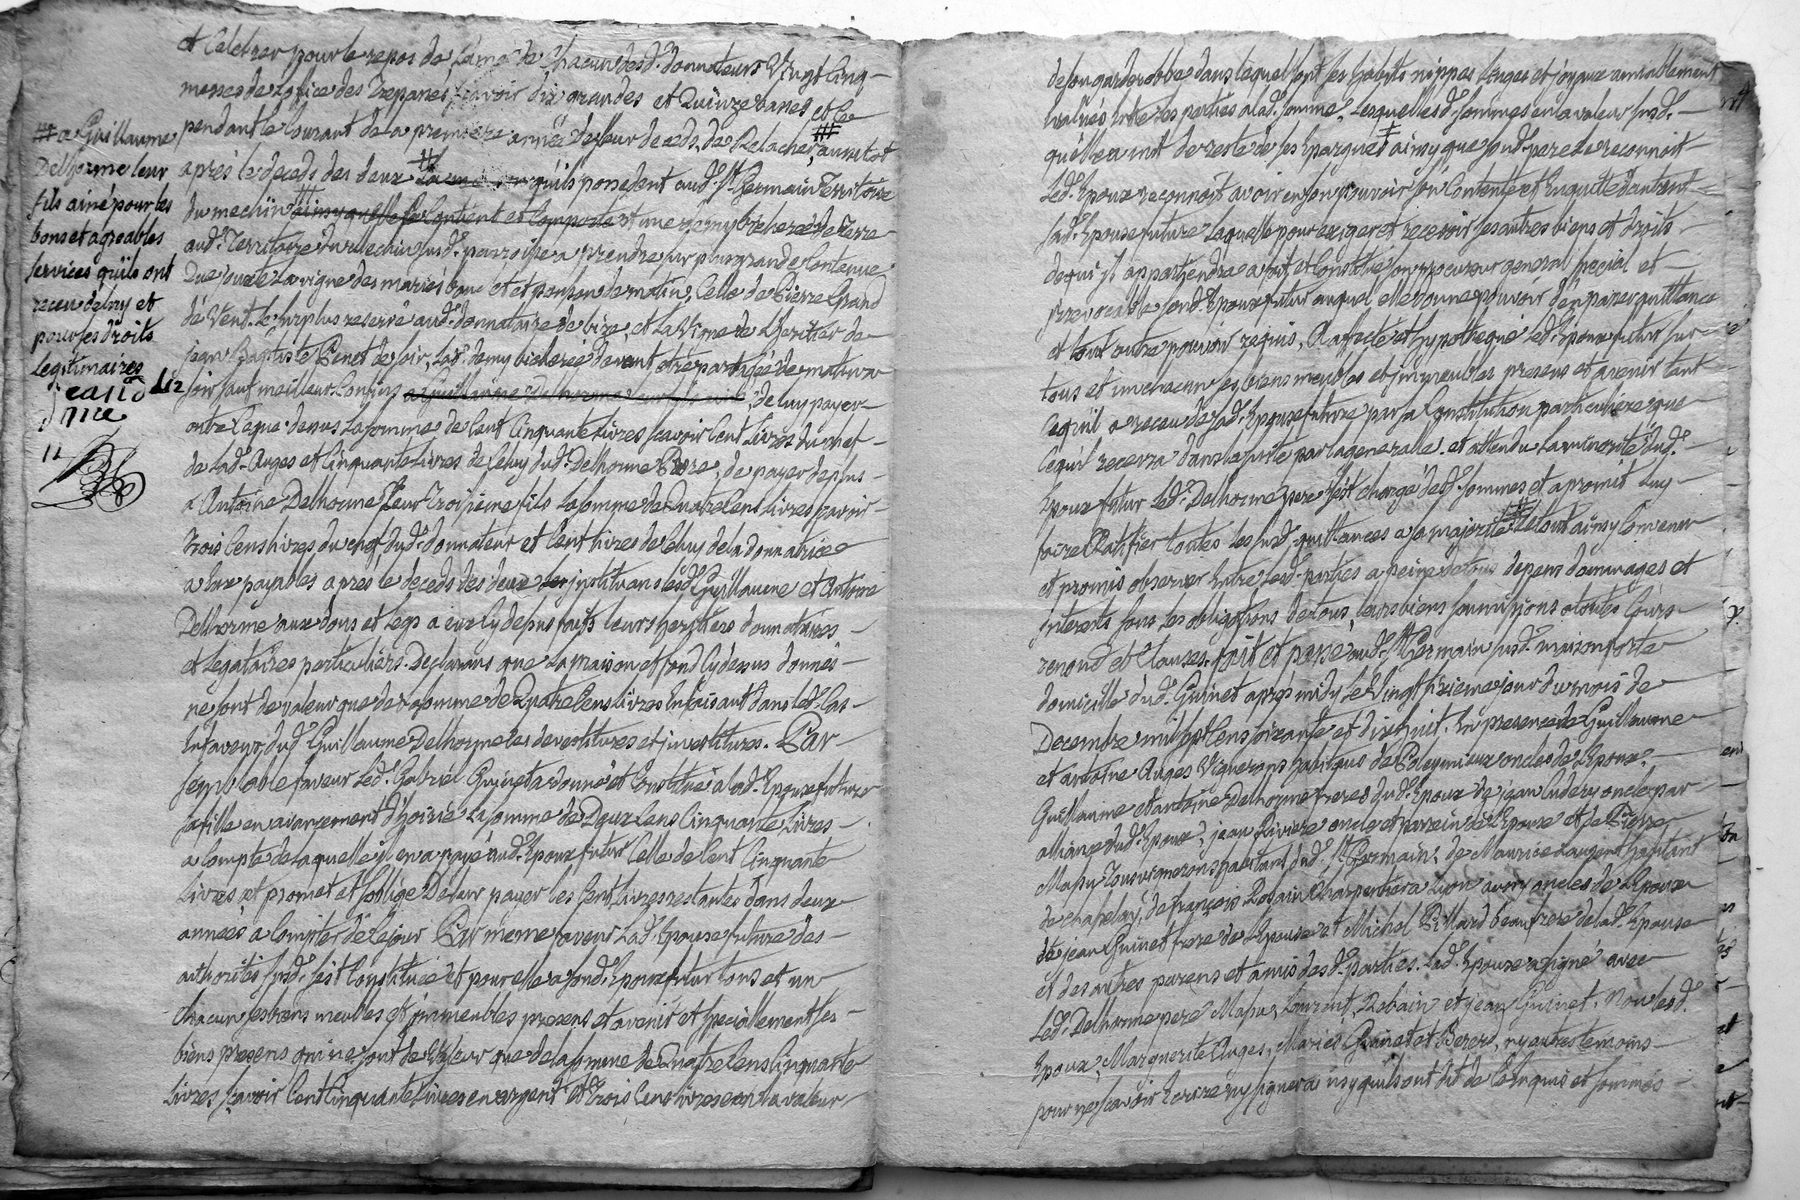 et Celebrer pour le repos de l'ame de Chacun desd. donnateurs Vingt Cinq
messes de l'office des Trepanés, scavoir dix grandes et Quinze basses
pendant le Courant de la premiere année de leur deceds, de Relacher aussitot
aprés le deceds des deux qu'ils possedent aud. St. Germain Territoire
du mechin ainsy qu'elle se Contient et Comporte et une demy bicherée de Terre
aud. Territoire du mechin susd. parroisse a prendre sur plus grande Contenue
que jouxte la vigne des mariés et de matin, Celle de Pierre Grand
de Vent. le surplus reservé aud. donnataire de bize, et la Vigne de l'heritier de
jean Baptiste Penet de soir, lad. demy bicherée devant etre partagée de matin a
soir sauf meilleurs Confins a Guillaume Delhorme leur fils ainé, de luy payer
outre l'eque dessus la somme de Cent Cinquante Livres scavoir Cent Livres du chef
de lad. Auges et Cinquante Livres de Celuy dud. Delhorme Pere, de payer de plus
a Antoine Delhorme leur Troisieme fils la somme de Quatre Cent Livres scavoir
Trois Cens Livres du chef dud. donnateur et Cent Livres de Celuy de la donnatrice
a Eux payables aprés le deceds des deux instituans lesd. Guillaume et Antoine
Delhorme aux dons et Legs a eux Cy dessus faits leurs heritiers donnataires
et Legataires particuliers. Declarans que la maison et fond Cy dessus donnés
ne sont de valeur que de la somme de Quatre Cens Livres se faisant dans led. Cas
En faveur dud. Guillaume Delhorme les devestitures et investitures. Par
semblable faveur led. Gabriel Guinet a donné et Constitué a lad. Epouse future
sa fille en avancement d'hoirie la somme de Deux Cens Cinquante Livres
a Compte de laquelle il en a payé aud. Epoux futur Celle de Cent Cinquante
Livres, et promet et s'oblige De leur payer les Cent Livres restantes dans deux
années a Compter de Ce jour Par meme faveur Lad. Epouse future des
authorités susd. s'est Constituée et pour elle a sond. Epoux futur tous et un
chacun ses biens meubles et immeubles presens et avenir et specialement ses
biens presens qui ne sont de Valeur que de la somme de Quatre Cens Cinquante
Livres, scavoir Cent Cinquante Livres en argent et Trois Cens Livres en la valeur
a Guillaume
Delhorme leur
fils ainé pour les
bons et agreables
services qu'ils ont
receu de luy et
pour ses droits
Legitimaires
de son garderobbe dans lequel sont ses habits nippes linges et joyaux amiablement
Evalués Entre les parties a lad. somme, Lesquelles d. sommes en la valeur susd.
qu'elle a mit de reste de ses Epargnes ainsy que sond. pere le reconnoit
led. Epoux reconnoit avoir en son pouvoir s'en Contente et Enquitte d'autant
lad. Epouse future Laquelle pour exiger et recevoir ses autres biens et droits
de qui il appartiendra a fait et Constitué son procureur general special et
irrevocable sond. Epoux futur auquel elle donne pouvoir d'en passer quittance
et tout autre pouvoir requis, A affecté et hypothequé led. Epoux futur sur
tous et un chacun ses biens meubles et immeubles presens et avenir tant
ce qu'il a receu de lad. Epouse future par sa Constitution particuliere que
ce qu'il recevra dans la suite par la generale. et attendu la minorité dud.
Epoux futur led. Delhorme pere s'est chargé desd. sommes et a promit luy
faire Ratifier toutes les susd. quittances a sa majorité Le tout ainsy Convenu
et promis observer Entre lesd. parties a peine de tous depens dommages et
Interests sous les obligations de tous leurs biens soumissions a toutes Cours
renonc. et Clauses. fait et passé aud. St. Germain susd. maison forte
domicille dud. Guinet aprés midy le Vingt sixieme jour du mois de
Decembre mil sept Cens soixante et dix huit. En presence de Guillaume
et antoine Auges Vignerons habitans de Poleymieux oncles de l'Epoux,
Guillaume et antoine Delhorme freres dud. Epoux de jean oncle par
alliance dud. Epoux, jean Riviere oncle et parrein de l'Epouse et de Pierre
Mapu Tous vignerons habitans dud. St. Germain, de Maurice Laurent habitant
de chapelay, de françois Robain Charpentier a Lion, oncles de l'Epoux
de jean Guinet frere de l'Epouse et Michel Billard beaufrere de lad. Epouse
et des autres parens et amis desd. parties. Lad. Epouse a signé avec
led. Delhorme pere Mapu, Laurent, Robain et jean Guinet. Non lesd.
Epoux, Marguerite Auges, Mariés Guinet et Berers, ny autres temoins
pour ne scavoir Ecrire ny signer a insy qu'ils ont dit de Ce Enquis et sommés